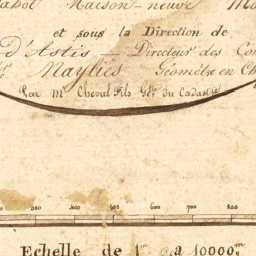 Maison-neuve
et sous la Direction de
d'Astis — Directeur des Con
Naylies Géomètre en Ch
Par Mr Cheval Fils Gtre du Cadastre
200 300 400 500 600 700 800
Echelle de 1m a 10000m